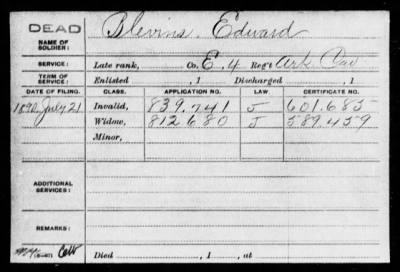 DEAD
NAME OF SOLDIER: Blevins, Edward
SERVICE: Late rank, Co. E, 4 Reg't Ark Cav
TERM OF SERVICE: Enlisted , 1 Discharged , 1
DATE OF FILING. CLASS. APPLICATION NO. LAW. CERTIFICATE NO.
1890, July 21 Invalid, 839.741 J 601.685
Widow, 812.680 J 589.459
Minor,
ADDITIONAL SERVICES:
REMARKS:
Died , 1 , at